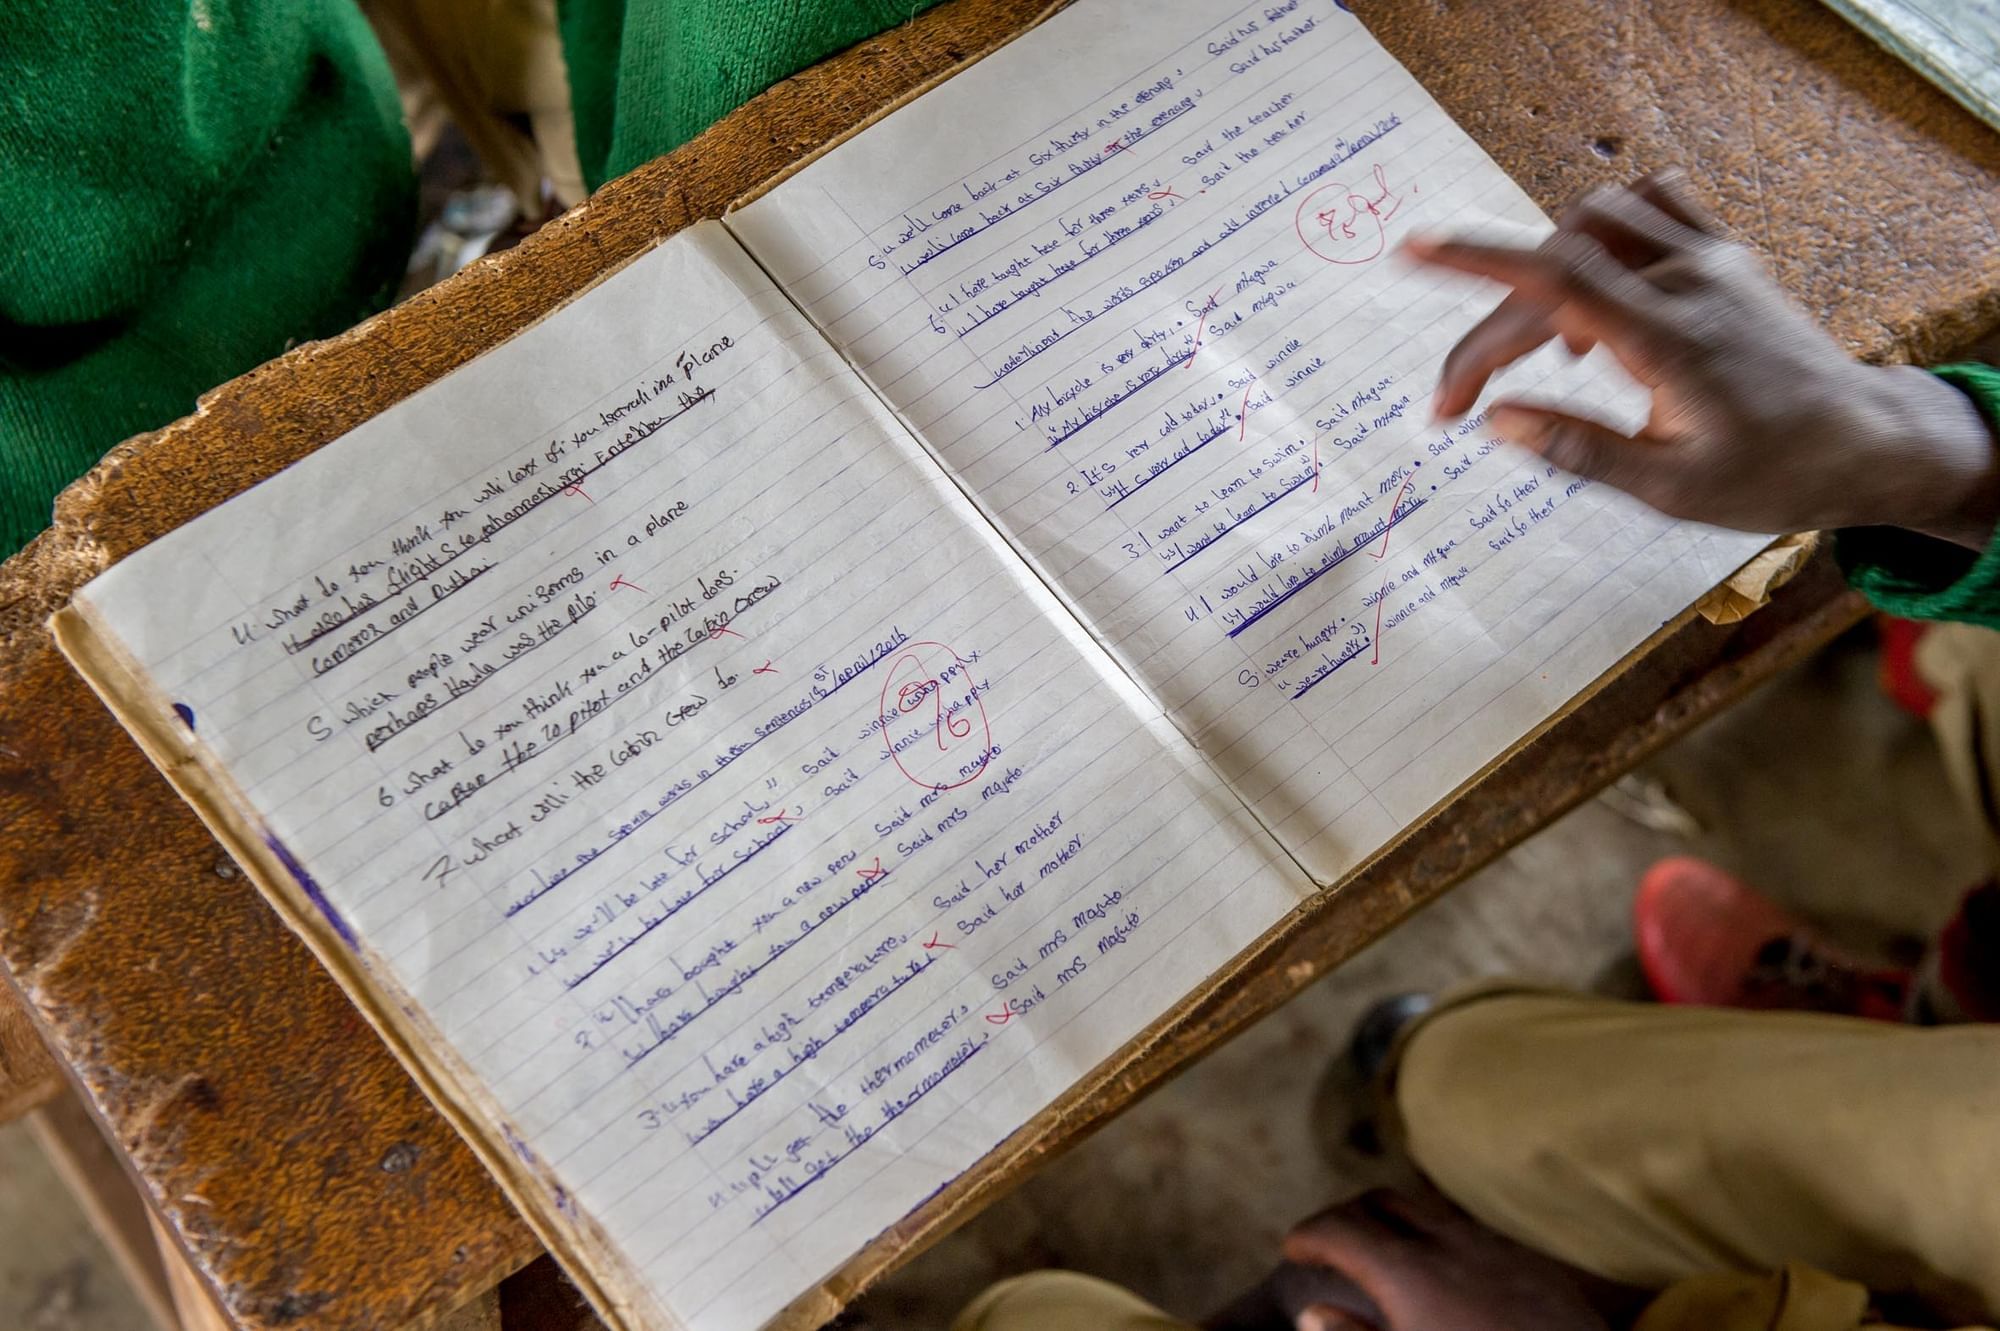 4. what do you think you will love if you traveli ina plane
Hawa has flight s to johannesburg Entebbu the,
Comoros and Duthai
5 which people wear uniforms in a plane
perhaps Hawla was the pilo.
6 what do you think you a co-pilot does.
Captan the co pilot and the cabin crew
7 what will the cabin crew do.
the words in them sentences 1st/April/2016
1. we'll be late for school," Said winnie unhapply.
we'll be late for school, said winnie unhapply
2 "I have bought you a new pen Said mrs majuto
"I have bought you a new pen, Said mrs majuto.
3. "you have a high temperature, Said her mother
you have a high temperature, Said her mother.
4 get the thermometer, Said mrs majuto.
get the thermometer, Said mrs majuto
5 "we'll come back at Six thirty in the evening, Said his father
"well come back at Six thirty in the evening, Said his father.
6 "I have taught here for three years, Said the teacher
"I have taught here for three years, Said the teacher
underlined the words spoken and add inverted commas /April/2016
Good
1. My bicycle is very dirty, Said mtagwa
"My bicycle is very dirty" Said mtagwa
2. It's very cold today, Said winnie
"It s very cold today" Said winnie
3. I want to learn to swim. Said mtagwa.
"I want to learn to Swim" Said mtagwa
4 I would love to climb mount meru. Said winnie
"I would love to climb mount meru" Said winn
5. we are hungry. winnie and mtagwa Said to their m
"we are hungry" winnie and mtagwa Said to their